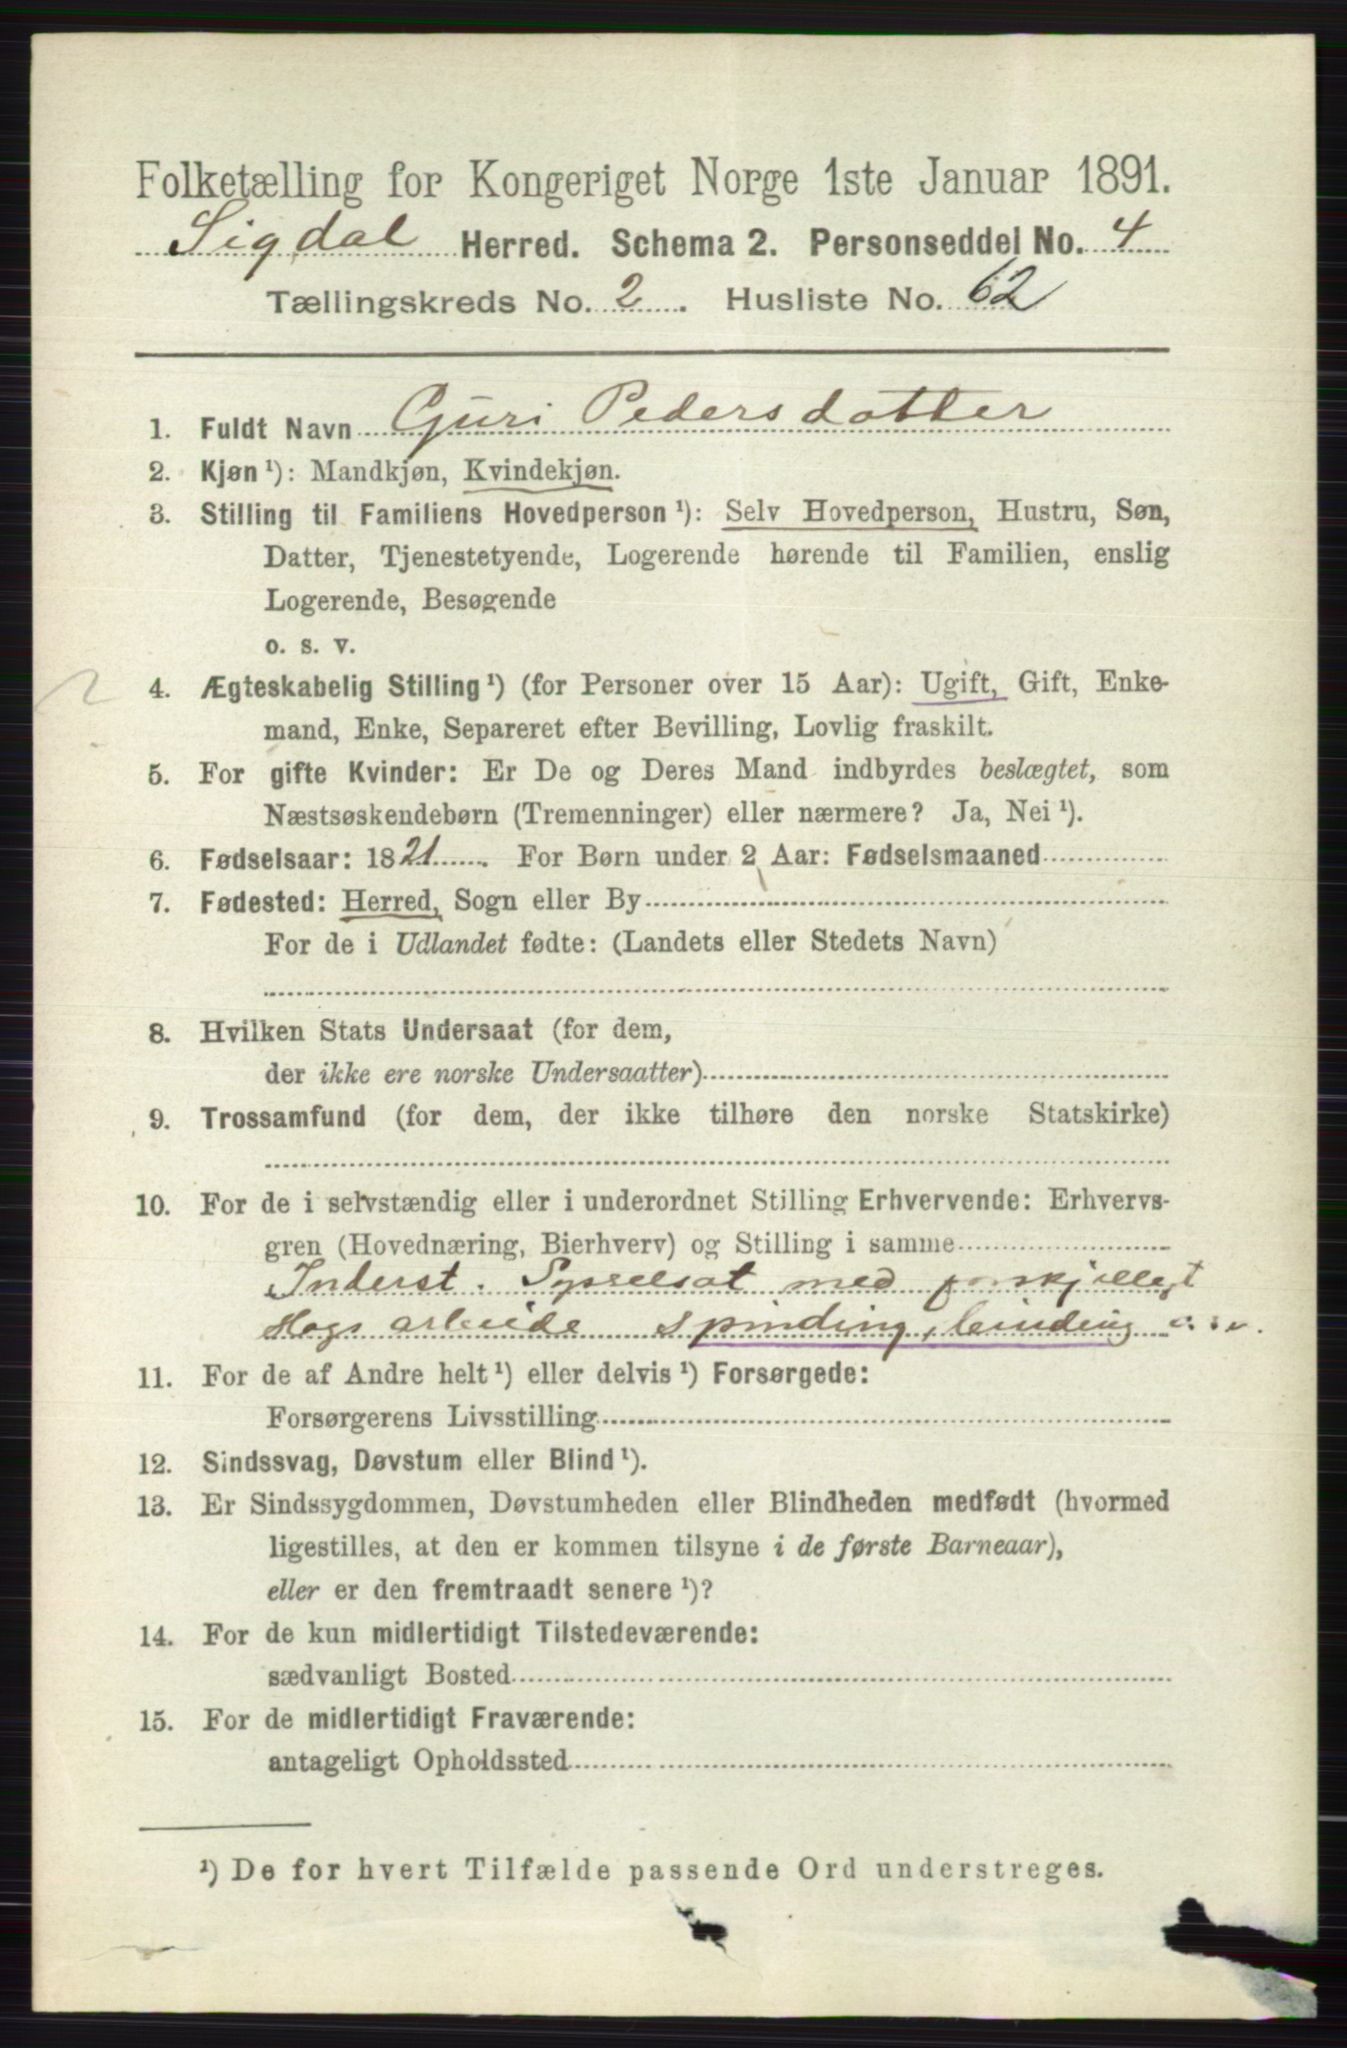 Folketælling for Kongeriget Norge 1ste Januar 1891.
Sigdal Herred. Schema 2. Personseddel No. 4
Tællingskreds No. 2. Husliste No. 62
1. Fuldt Navn Guri Pedersdatter
2. Kjøn ¹): Mandkjøn, Kvindekjøn.
3. Stilling til Familiens Hovedperson ¹): Selv Hovedperson, Hustru, Søn,
Datter, Tjenestetyende, Logerende hørende til Familien, enslig
Logerende, Besøgende
o. s. v.
4. Ægteskabelig Stilling ¹) (for Personer over 15 Aar): Ugift, Gift, Enke-
mand, Enke, Separeret efter Bevilling, Lovlig fraskilt.
5. For gifte Kvinder: Er De og Deres Mand indbyrdes beslægtet, som
Næstsøskendebørn (Tremenninger) eller nærmere? Ja, Nei ¹).
6. Fødselsaar: 1821. For Børn under 2 Aar: Fødselsmaaned
7. Fødested: Herred, Sogn eller By
For de i Udlandet fødte: (Landets eller Stedets Navn)
8. Hvilken Stats Undersaat (for dem,
der ikke ere norske Undersaatter)
9. Trossamfund (for dem, der ikke tilhøre den norske Statskirke)
10. For de i selvstændig eller i underordnet Stilling Erhvervende: Erhvervs-
gren (Hovednæring, Bierhverv) og Stilling i samme
Inderst. Sysselsat med forskjelligt
arbeide spinding, binding
11. For de af Andre helt ¹) eller delvis ¹) Forsørgede:
Forsørgerens Livsstilling
12. Sindssvag, Døvstum eller Blind ¹).
13. Er Sindssygdommen, Døvstumheden eller Blindheden medfødt (hvormed
ligestilles, at den er kommen tilsyne i de første Barneaar),
eller er den fremtraadt senere ¹)?
14. For de kun midlertidigt Tilstedeværende:
sædvanligt Bosted
15. For de midlertidigt Fraværende:
antageligt Opholdssted
¹) De for hvert Tilfælde passende Ord understreges.